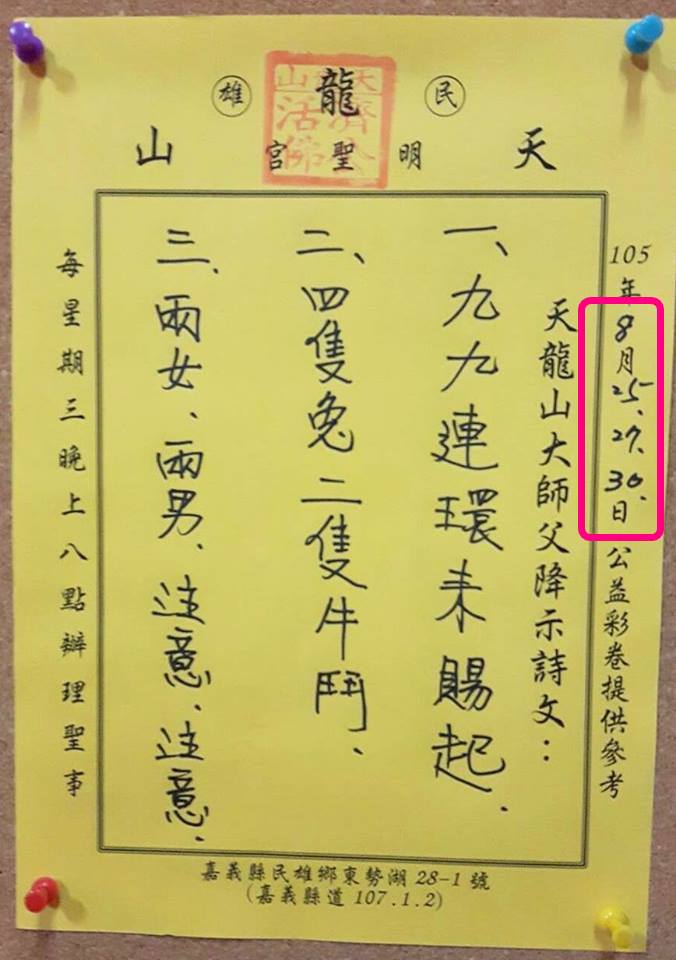 民 龍 雄
天 明 聖 宮 山
天龍山
濟公
活佛
105年8月25、27、30、日公益彩卷提供參考
天龍山大師父降示詩文：
一、九九連環来賜起．
二、四隻兔二隻牛鬥、
三、兩女、兩男、注意、注意．
每星期三晚上八點辦理聖事
嘉義縣民雄鄉東勢湖 28-1 號
(嘉義縣道 107.1.2)